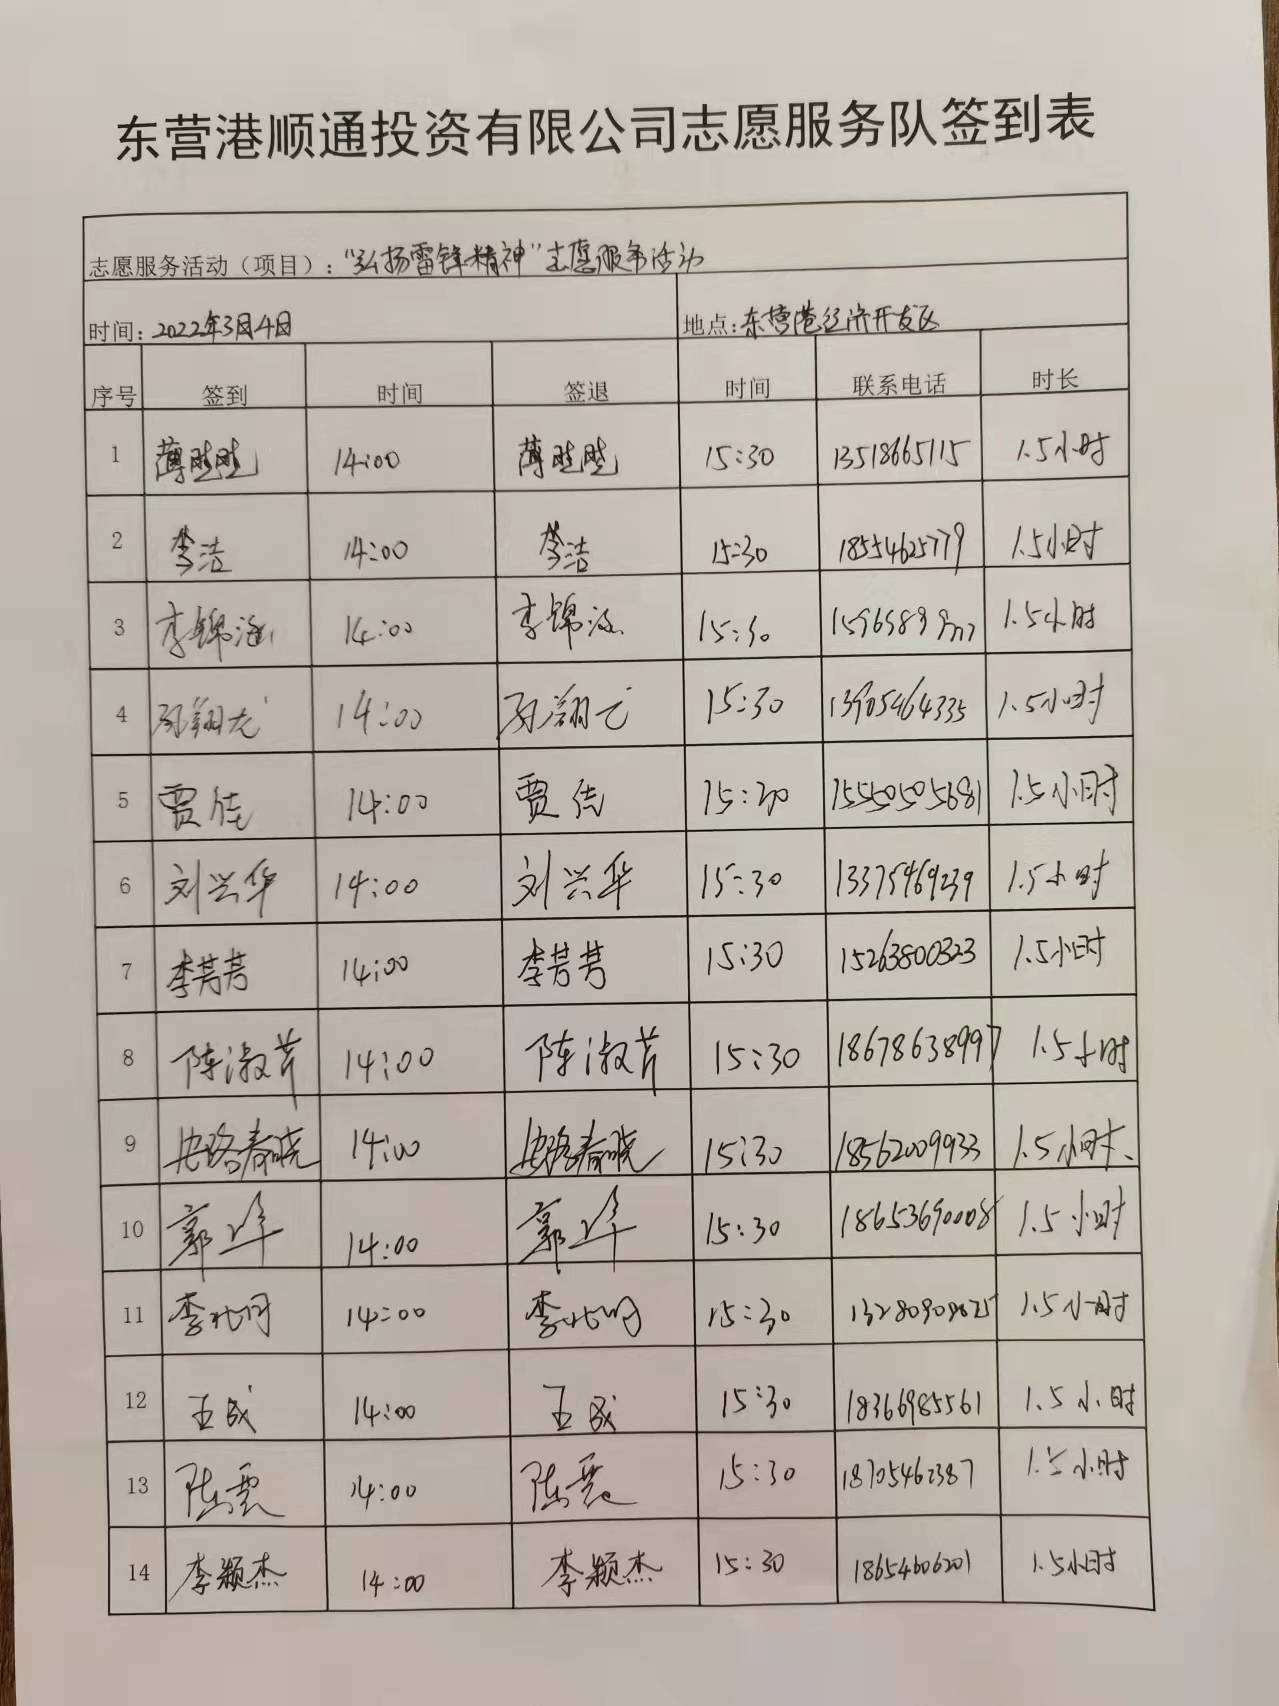 东营港顺通投资有限公司志愿服务队签到表
志愿服务活动（项目）："弘扬雷锋精神"志愿服务活动
时间：2022年3月4日 地点：东营港经济开发区
序号 签到 时间 签退 时间 联系电话 时长
1 薄 14:00 薄 15:30 13518665115 1.5小时
2 李洁 14:00 李洁 15:30 18554625779 1.5小时
3 李锦涵 14:00 李锦涵 15:30 1.5小时
4 孙翔 14:00 孙翔 15:30 13905464335 1.5小时
5 贾佳 14:00 贾佳 15:30 15550505681 1.5小时
6 刘兴华 14:00 刘兴华 15:30 13375469239 1.5小时
7 李芳芳 14:00 李芳芳 15:30 15263800323 1.5小时
8 陈淑芹 14:00 陈淑芹 15:30 18678638997 1.5小时
9 路春晓 14:00 路春晓 15:30 18562009933 1.5小时
10 郭峰 14:00 郭峰 15:30 18653690008 1.5小时
11 李 14:00 李 15:30 1.5小时
12 王成 14:00 王成 15:30 18366985561 1.5小时
13 陈震 14:00 陈震 15:30 18705462387 1.5小时
14 李颖杰 14:00 李颖杰 15:30 18654606201 1.5小时